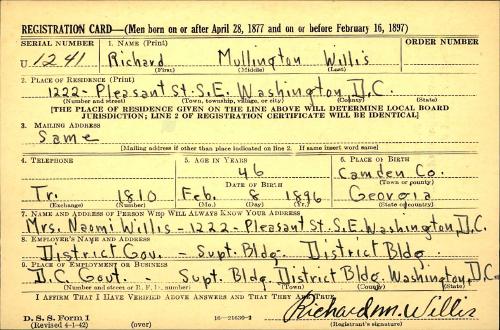 REGISTRATION CARD—(Men born on or after April 28, 1877 and on or before February 16, 1897)
SERIAL NUMBER 1. NAME (Print) ORDER NUMBER
U 1241 Richard Mullington Willis
(First) (Middle) (Last)
2. PLACE OF RESIDENCE (Print)
1222 - Pleasant St. S.E. Washington D.C.
(Number and street) (Town, township, village, or city) (County) (State)
[THE PLACE OF RESIDENCE GIVEN ON THE LINE ABOVE WILL DETERMINE LOCAL BOARD
JURISDICTION; LINE 2 OF REGISTRATION CERTIFICATE WILL BE IDENTICAL]
3. MAILING ADDRESS
Same
[Mailing address if other than place indicated on line 2. If same insert word same]
4. TELEPHONE 5. AGE IN YEARS 6. PLACE OF BIRTH
46 Camden Co.
DATE OF BIRTH (Town or county)
Tr. 1810 Feb. 8 1896 Georgia
(Exchange) (Number) (Mo.) (Day) (Yr.) (State or country)
7. NAME AND ADDRESS OF PERSON WHO WILL ALWAYS KNOW YOUR ADDRESS
Mrs. Naomi Willis - 1222 - Pleasant St. S.E. Washington, D.C.
8. EMPLOYER'S NAME AND ADDRESS
District Gov. - Supt. Bldg. District Bldg.
9. PLACE OF EMPLOYMENT OR BUSINESS
D.C. Govt. - Supt. Bldg. District Bldg. Washington, D.C.
(Number and street or R. F. D. number) (Town) (County) (State)
I AFFIRM THAT I HAVE VERIFIED ABOVE ANSWERS AND THAT THEY ARE TRUE.
Richard M. Willis
D. S. S. Form 1
(Revised 4-1-42) (over) 16—21630-2 (Registrant's signature)